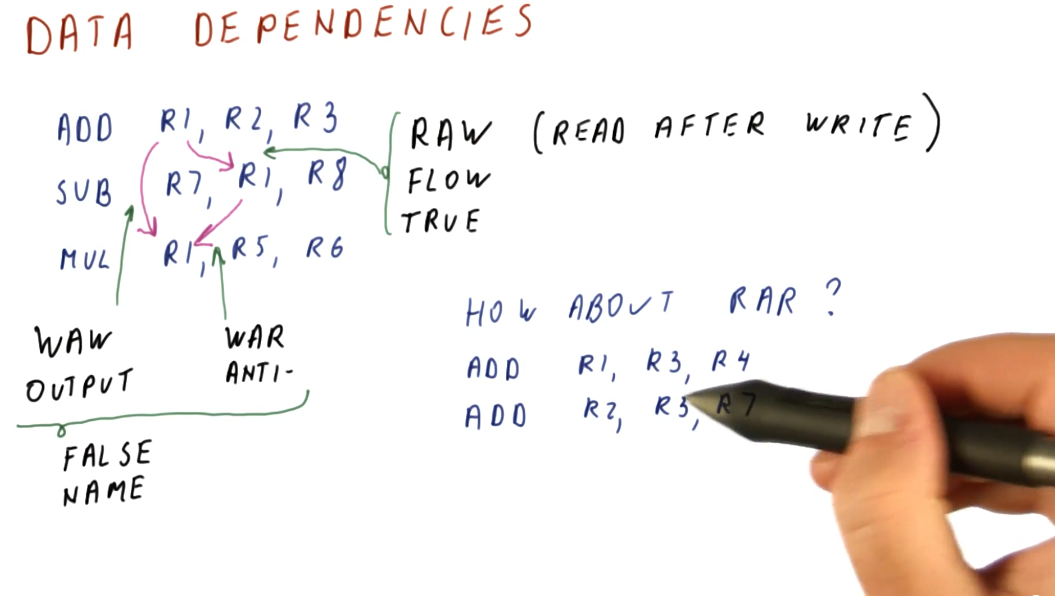 DATA DEPENDENCIES
ADD R1, R2, R3
SUB R7, R1, R8
MUL R1, R5, R6
RAW (READ AFTER WRITE)
FLOW
TRUE
WAW
OUTPUT
WAR
ANTI-
FALSE
NAME
HOW ABOUT RAR?
ADD R1, R3, R4
ADD R2, R3, R7